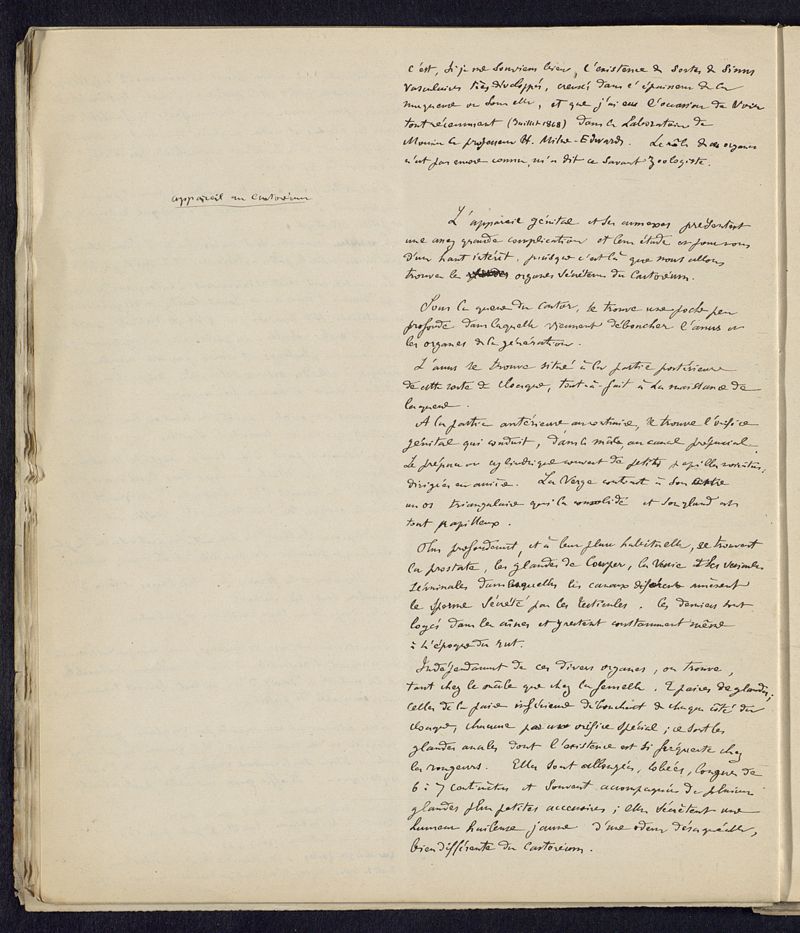 c'est, si je me souviens bien, l'existence de sortes de sinus
vasculaires très développés, creusés dans l'épaisseur de la
muqueuse ou sous elle, et que j'ai eu l'occasion de voir
tout récemment (Juillet 1868) dans le Laboratoire de
Monsieur le professeur H. Milne-Edwards. Le rôle de ces organes
n'est pas encore connu, m'a dit ce savant Zoologiste.
appareil au Castoréum
L'appareil génital et ses annexes présentent
une assez grande complication et leur étude est pour nous
d'un haut intérêt, puisque c'est là que nous allons
trouver les organes sécréteurs du Castoréum.
Sous la queue du castor, se trouve une poche peu
profonde dans laquelle viennent déboucher l'anus et
les organes de la génération.
L'anus se trouve situé à la partie postérieure
de cette sorte de cloaque, tout-à-fait à la naissance de
la queue.
A la partie antérieure au contraire, se trouve l'orifice
génital qui conduit, dans le mâle, au canal préputial.
Le prépuce est cylindrique couvert de petites papilles noirâtres,
dirigées en arrière. La Verge contient à son
un os triangulaire qui la consolide et son gland est
tout papilleux.
Plus profondément, et à leur place habituelle, se trouvent
la prostate, les glandes de Cowper, la vessie et les vésicules
séminales dans lesquelles les canaux déférents amènent
le sperme sécrété par les testicules. Ces derniers sont
logés dans les aînes et y restent constamment même
à l'époque du rut.
Indépendamment de ces divers organes, on trouve,
tant chez le mâle que chez la femelle, 2 paires de glandes;
celles de la paire inférieure débouchent de chaque côté du
cloaque, chacune par un orifice spécial; ce sont les
glandes anales dont l'existence est si fréquente chez
les rongeurs. Elles sont allongées, lobées, longues de
6 à 7 centimètres et souvent accompagnées de plusieurs
glandes plus petites accessoires; elles sécrètent une
humeur huileuse jaune d'une odeur désagréable,
bien différente du Castoréum.